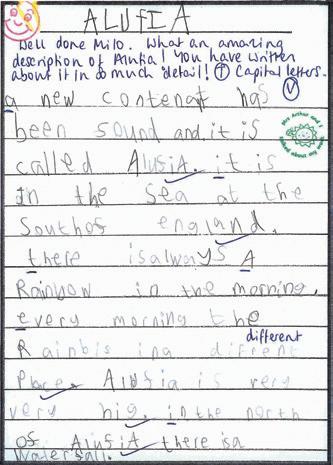 ALUFIA
Well done Milo. What an amazing
description of Alufia! You have written
about it in so much detail! Ⓣ Capital letters.
Ⓥ
a new contenat has
been sound and it is
called AlusiA. it is
In the Sea at the
Southos england.
there isalways A
Rainbow in the morning.
every morning the
different
Rainbis ina difrent
Place. Alufia is very
very big. in the north
os AlufiA there isa
Waterfall.